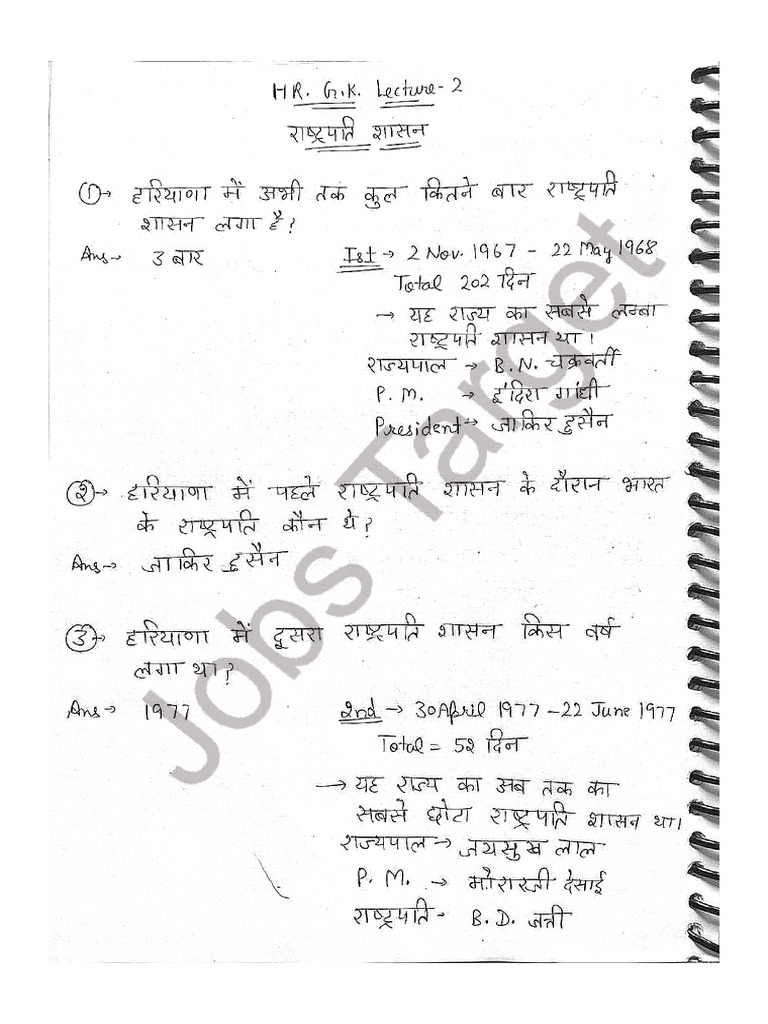 HR. G.K. Lecture-2
राष्ट्रपति शासन
①→ हरियाणा में अभी तक कुल कितने बार राष्ट्रपति
शासन लगा है?
Ans→ 3 बार
Ist → 2 Nov. 1967 - 22 May 1968
Total 202 दिन
→ यह राज्य का सबसे लम्बा
राष्ट्रपति शासन था।
राज्यपाल → B.N. चक्रवर्ती
P.M. → इंदिरा गांधी
President → जाकिर हुसैन
②→ हरियाणा में पहले राष्ट्रपति शासन के दौरान भारत
के राष्ट्रपति कौन थे?
Ans→ जाकिर हुसैन
③→ हरियाणा में दूसरा राष्ट्रपति शासन किस वर्ष
लगा था?
Ans→ 1977
2nd → 30 April 1977 - 22 June 1977
Total = 52 दिन
→ यह राज्य का अब तक का
सबसे छोटा राष्ट्रपति शासन था।
राज्यपाल → जयसुख लाल
P.M. → मोरारजी देसाई
राष्ट्रपति - B.D. जत्ती
Jobs Target